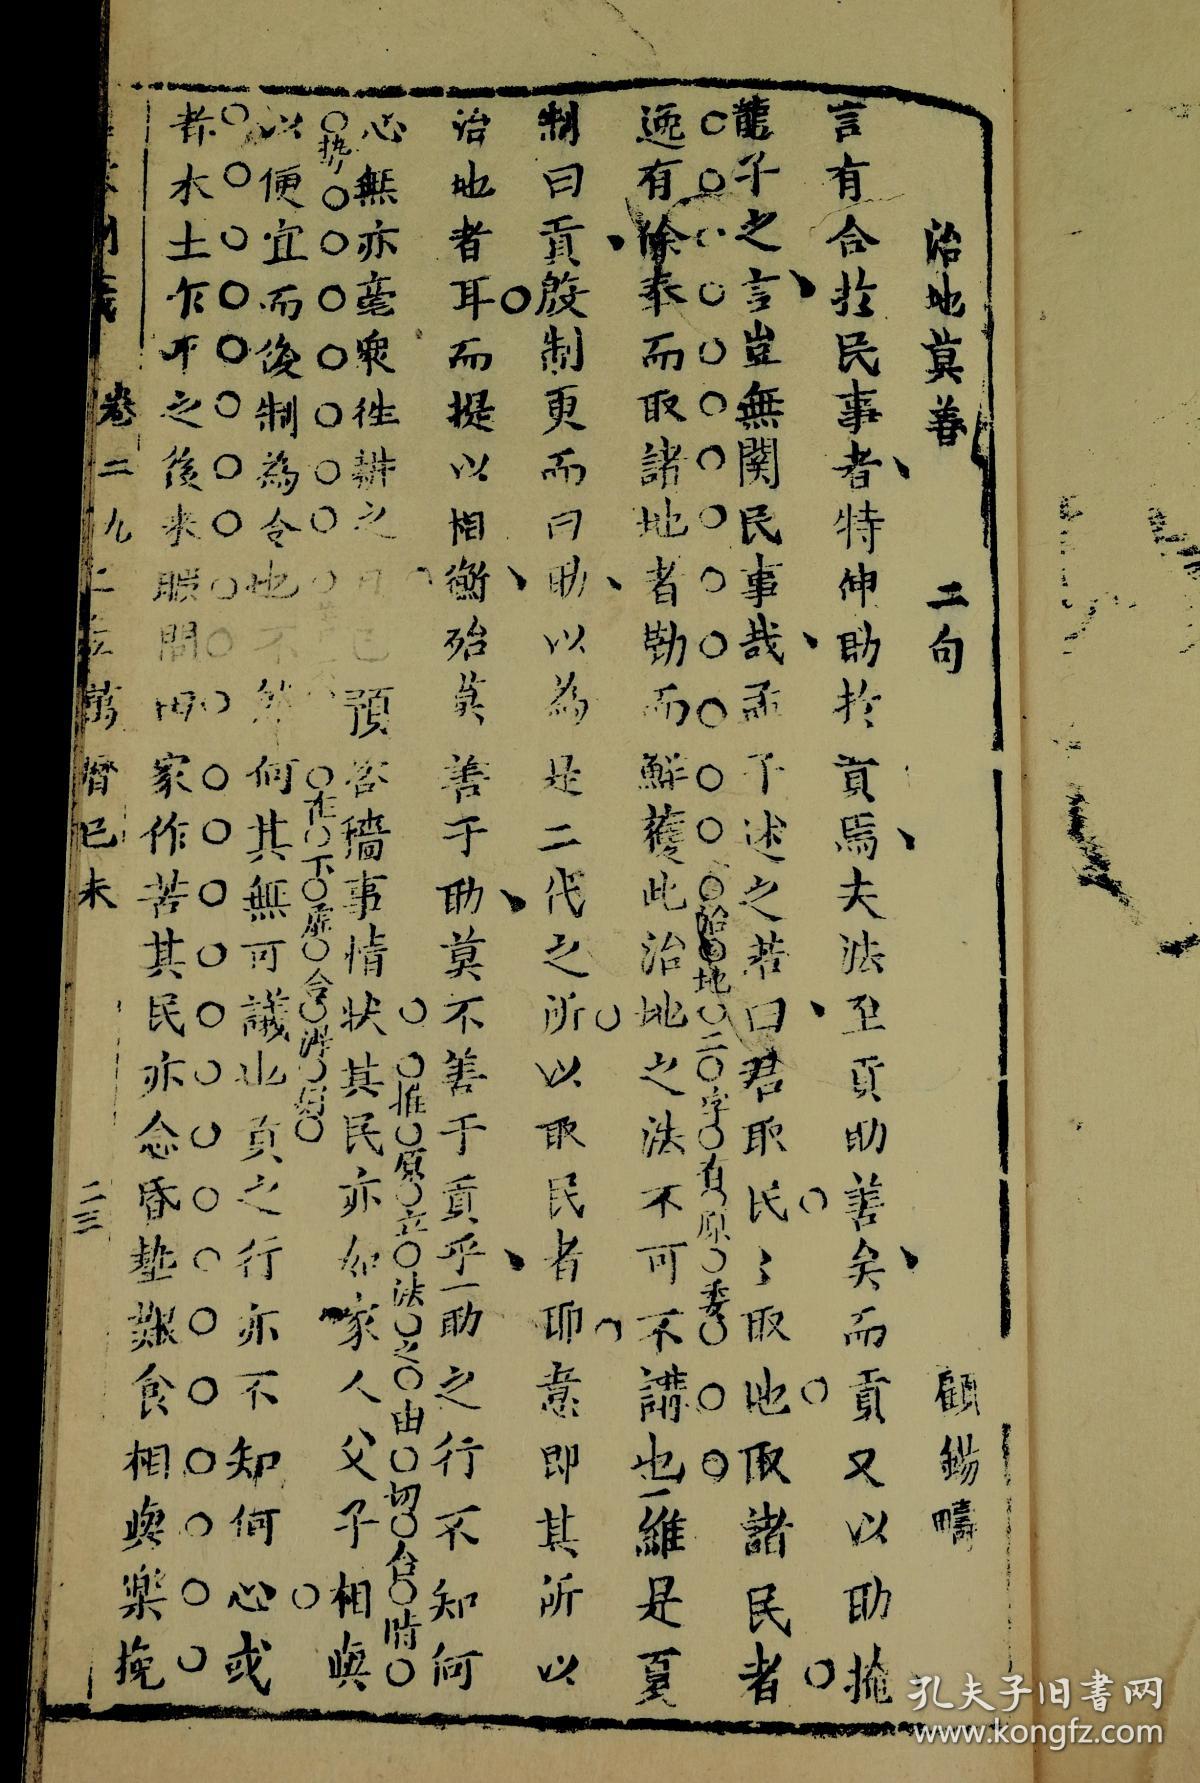 治地莫善 二句 顧錫疇
言有合於民事者特伸助於貢焉夫法至貢助善矣而貢又以助掩
龍子之言豈無関民事哉孟子述之若曰君取民〻取地取諸民者
治地二字有原委
逸有餘奉而取諸地者勤而鮮獲此治地之法不可不講也維是夏
制曰貢殷制更而曰助以為是二代之所以取民者耶意即其所以
治地者耳而提以相衡殆莫善于助莫不善于貢乎一助之行不知何
推原立法之由切合時
势
心無亦毫衆徃耕之 預啓穡事情狀其民亦如家人父子相與
以便宜而後制為令也不然何其無可議也貢之行亦不知何心或
者水土乍平之後来暇問田家作苦其民亦念昏墊艱食相與樂挽
卷二 九 萬曆己未 二三
孔夫子旧書网
www.kongfz.com